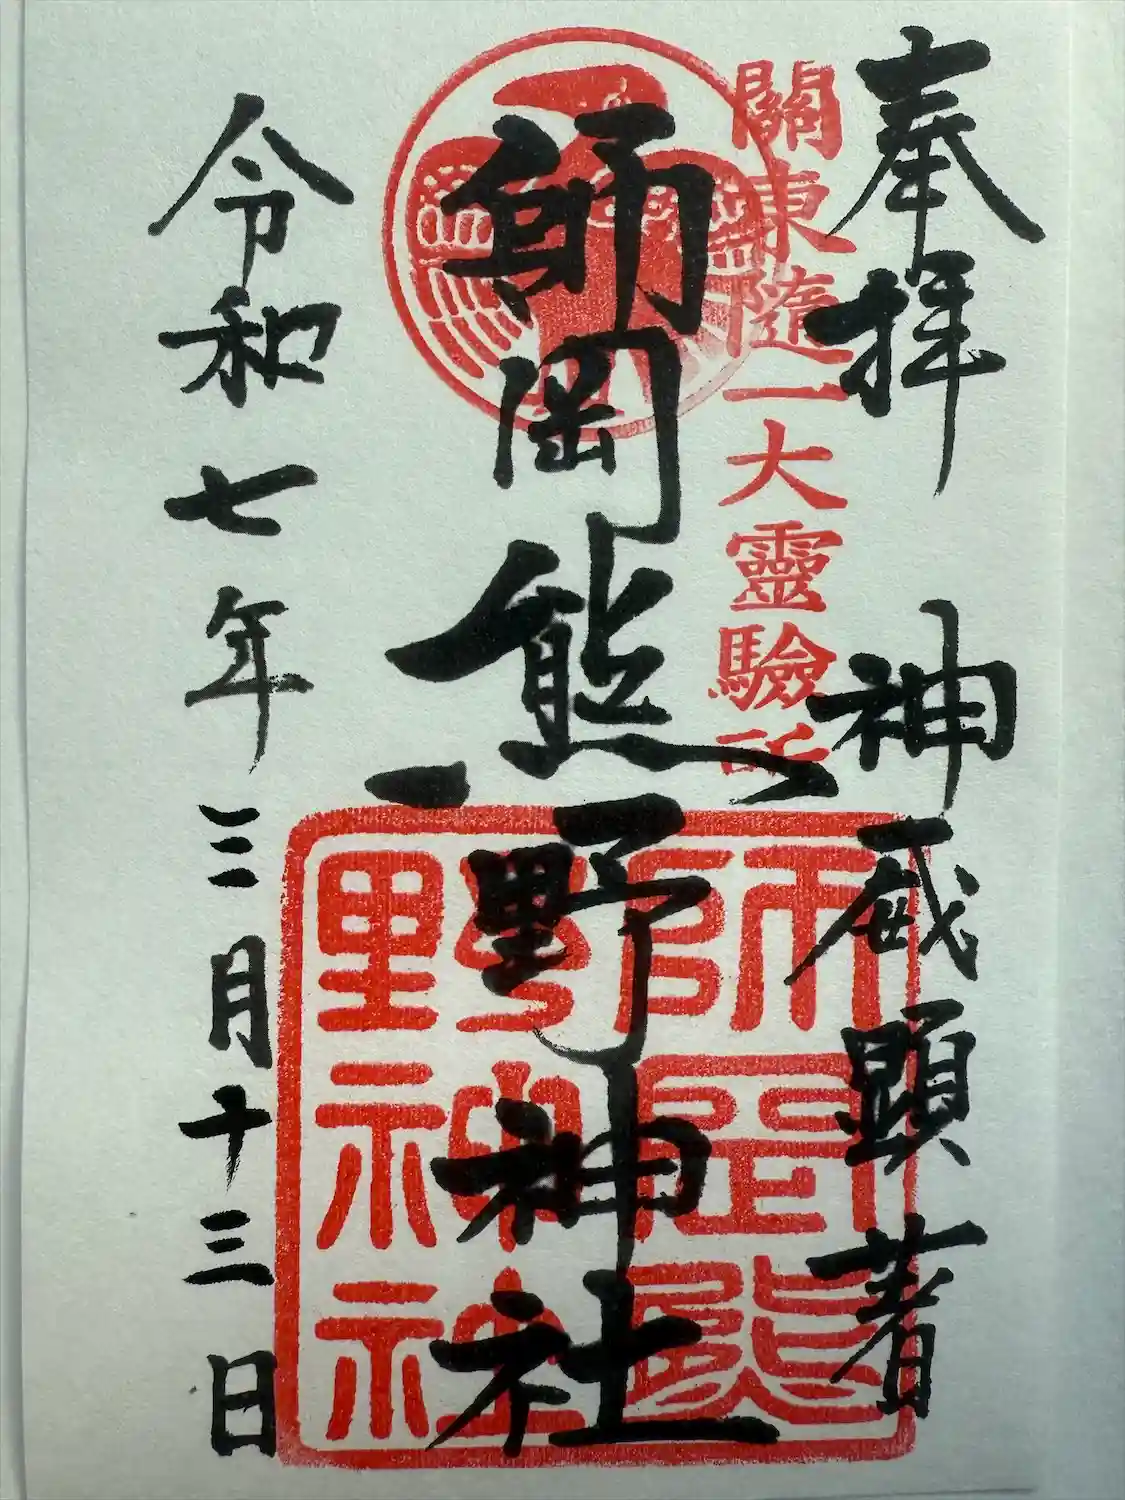 奉拝 神威顕著
關東隨一大靈驗所
師岡熊野神社
師岡熊野神社
令和七年三月十三日